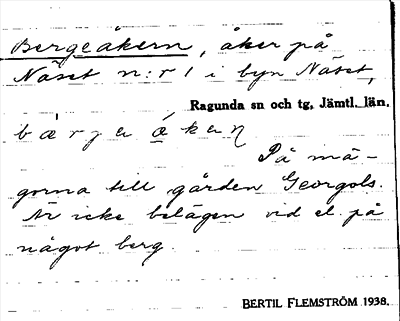 Bergeåkern, åker på
Näset n:r 1 i byn Näset,
Ragunda sn och tg, Jämtl. län.
bärje åken
På mä-
gorna till gården Georgols.
Är icke belägen vid el. på
något berg.
BERTIL FLEMSTRÖM 1938.